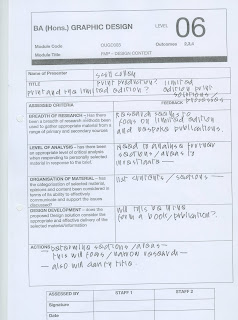 BA (Hons.) GRAPHIC DESIGN
LEVEL 06
Module Code
Outcomes
Module Title
FMP - DESIGN CONTEXT
Name of Presenter
TITLE
print production? limited
print and the limited edition? edition print
ASSESSED CRITERIA
FEEDBACK
BREADTH OF RESEARCH – Has there
been a breadth of research methods been
used to gather appropriate material from a
range of primary and secondary sources
research seems to
focus on limited edition
and bespoke publications.
LEVEL OF ANALYSIS – has there been
an appropriate level of critical analysis
when responding to personally selected
material in response to the brief.
need to analyse further
sections/areas to
investigate –
ORGANISATION OF MATERIAL – has
the categorisation of selected material,
opinions and content been considered in
terms of its ability to effectively
communicate and support the issues
discussed?
list contents / sections –
DESIGN DEVELOPMENT – does the
proposed Design solution consider the
appropriate and effective delivery of the
selected material/information
will this be in the
form a book/publication?
ACTIONS
determine sections/areas –
this will focus/narrow research –
– also will clarify title.
ASSESSED BY
STAFF 1
STAFF 2
Signature
Date